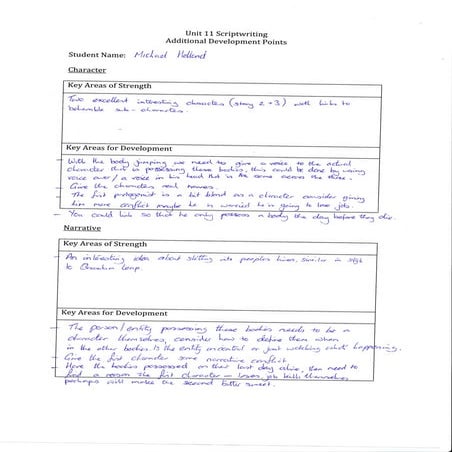 Unit 11 Scriptwriting
Additional Development Points
Student Name: Michael Holland
Character
Key Areas of Strength
- Two excellent interesting characters (story 2 + 3) with links to
believable sub-characters.
Key Areas for Development
- With the body jumping we need to give a voice to the actual
character that is possessing these bodies, this could be done by using
voice over / a voice in his head that is the same across the three.
- Give the characters real names.
- The first protagonist is a bit bland as a character consider giving
him more conflict maybe he is worried he is going to lose job.
- You could link so that he only possess a body the day before they die.
Narrative
Key Areas of Strength
- An interesting idea about slotting into peoples lives, similar in style
to Quantum Leap.
Key Areas for Development
- The person/entity possessing these bodies needs to be a
character themselves, consider how to define them when
in the other bodies. Is the entity in control or just watching what happening.
- Give the first character some narrative conflict
- Have the bodies possessed on their last day alive, then need to
find a reason the first character - loses job kills themselves
perhaps will make the second bitter sweet.